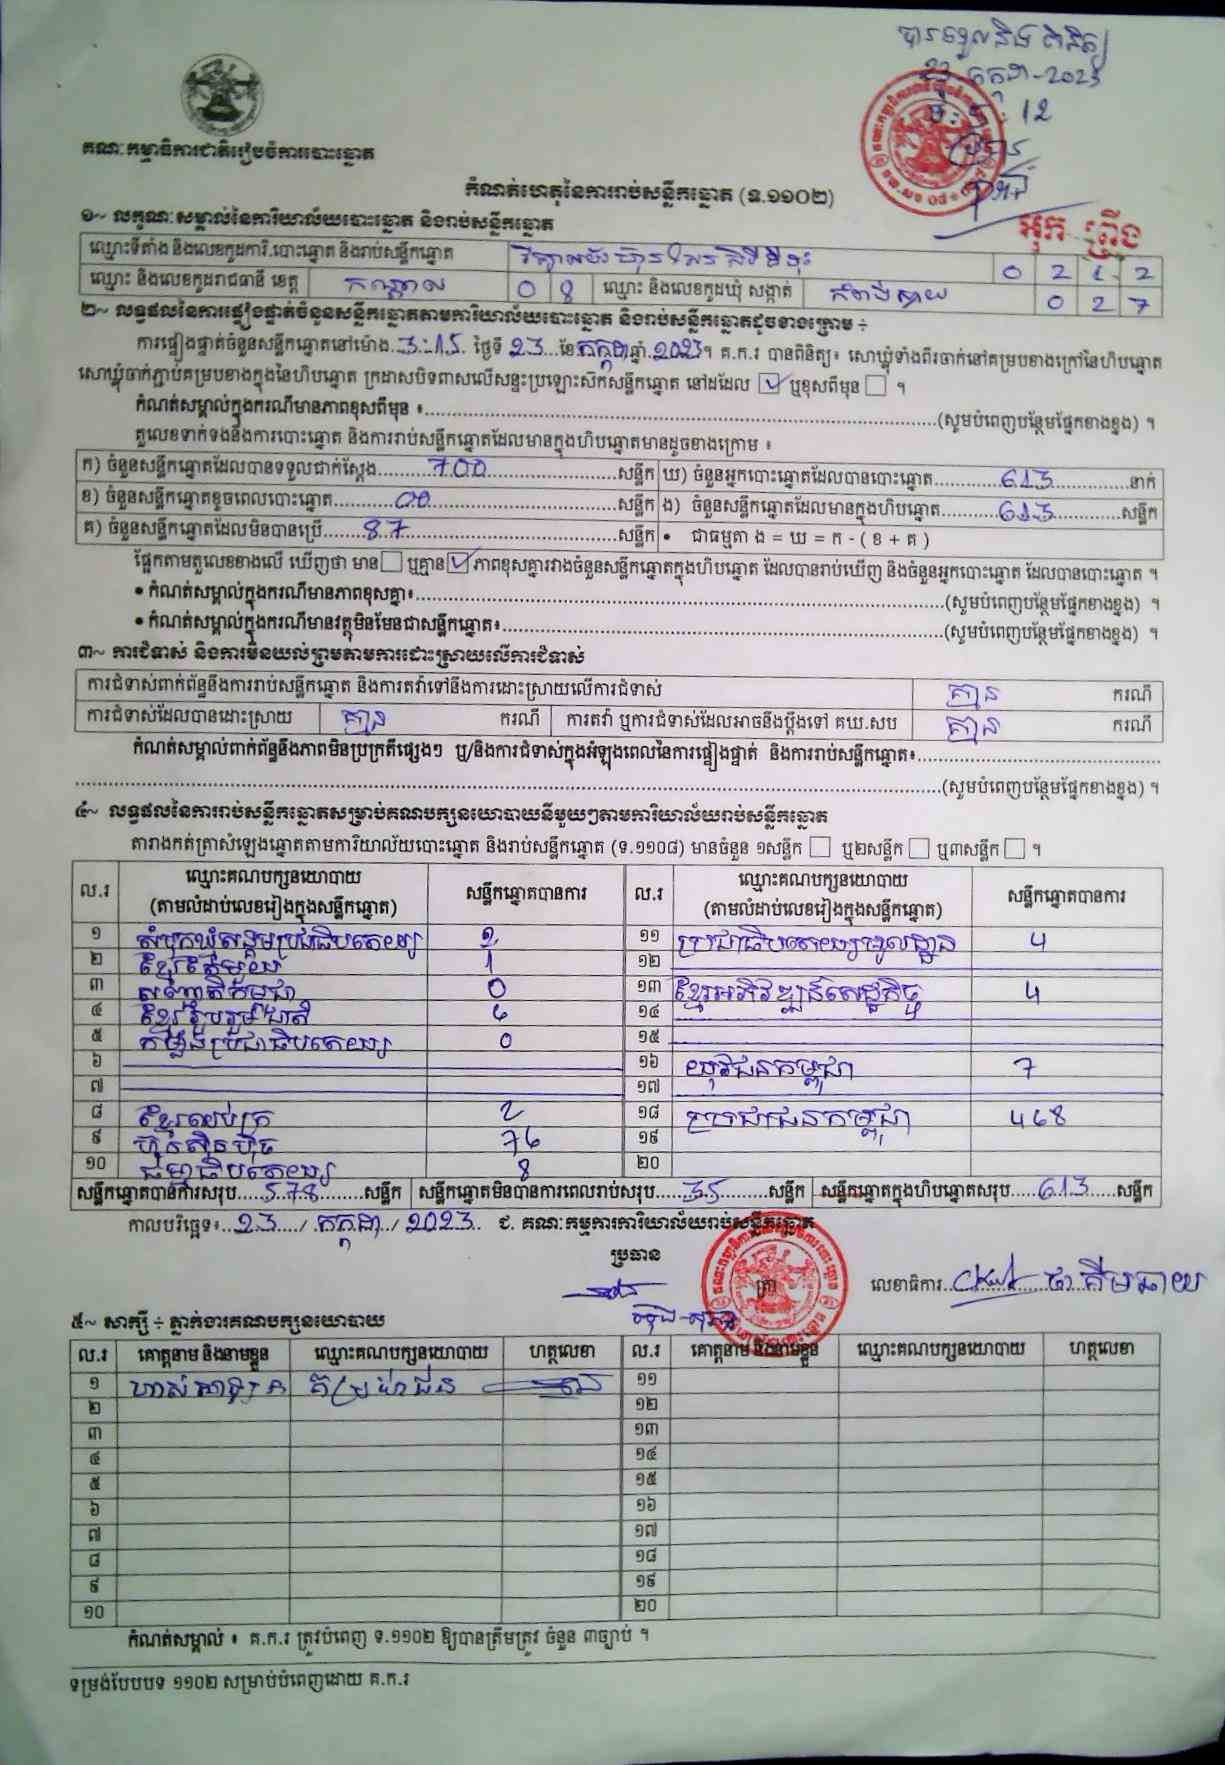 បានទទួលនិង ពិនិត្យ
23 កក្កដា-2023
ម៉ោង: 12
ប្រធាន
គណៈកម្មាធិការជាតិរៀបចំការបោះឆ្នោត
អុក ព្រឿង
កំណត់ហេតុនៃការរាប់សន្លឹកឆ្នោត (ទ.១១០២)
១~ លក្ខណៈសម្គាល់នៃការិយាល័យបោះឆ្នោត និងរាប់សន្លឹកឆ្នោត
ឈ្មោះទីតាំង និងលេខកូដការិ.បោះឆ្នោត និងរាប់សន្លឹកឆ្នោត 0 2 1 2
ឈ្មោះ និងលេខកូដរាជធានី ខេត្ត កណ្តាល 0 8 ឈ្មោះ និងលេខកូដឃុំ សង្កាត់ 0 2 7
២~ លទ្ធផលនៃការផ្ទៀងផ្ទាត់ចំនួនសន្លឹកឆ្នោតតាមការិយាល័យបោះឆ្នោត និងរាប់សន្លឹកឆ្នោតដូចខាងក្រោម ÷
ការផ្ទៀងផ្ទាត់ចំនួនសន្លឹកឆ្នោតនៅម៉ោង.3:15. ថ្ងៃទី 23...ខែកក្កដាឆ្នាំ.2023។ គ.ក.រ បានពិនិត្យ៖ សោឃ្លុំទាំងពីរចាក់នៅគម្របខាងក្រៅនៃហិបឆ្នោត
សោឃ្លុំចាក់ភ្ជាប់គម្របខាងក្នុងនៃហិបឆ្នោត ក្រដាសបិទពាសលើសន្ទះប្រឡោះស៊កសន្លឹកឆ្នោត នៅដដែល ☑ ឬខុសពីមុន ☐ ។
កំណត់សម្គាល់ក្នុងករណីមានភាពខុសពីមុន ៖.....(សូមបំពេញបន្ថែមផ្នែកខាងខ្នង) ។
តួលេខទាក់ទងនឹងការបោះឆ្នោត និងការរាប់សន្លឹកឆ្នោតដែលមានក្នុងហិបឆ្នោតមានដូចខាងក្រោម ៖
ក) ចំនួនសន្លឹកឆ្នោតដែលបានទទួលជាក់ស្តែង.....700.....សន្លឹក ឃ) ចំនួនអ្នកបោះឆ្នោតដែលបានបោះឆ្នោត.....613.....នាក់
ខ) ចំនួនសន្លឹកឆ្នោតខូចពេលបោះឆ្នោត.....00.....សន្លឹក ង) ចំនួនសន្លឹកឆ្នោតដែលមានក្នុងហិបឆ្នោត.....613.....សន្លឹក
គ) ចំនួនសន្លឹកឆ្នោតដែលមិនបានប្រើ.....87.....សន្លឹក • ជាធម្មតា ង = ឃ = ក - ( ខ + គ )
ផ្អែកតាមតួលេខខាងលើ ឃើញថា មាន ☐ ឬគ្មាន ☑ ភាពខុសគ្នារវាងចំនួនសន្លឹកឆ្នោតក្នុងហិបឆ្នោត ដែលបានរាប់ឃើញ និងចំនួនអ្នកបោះឆ្នោត ដែលបានបោះឆ្នោត ។
• កំណត់សម្គាល់ក្នុងករណីមានភាពខុសគ្នា៖.....(សូមបំពេញបន្ថែមផ្នែកខាងខ្នង) ។
• កំណត់សម្គាល់ក្នុងករណីមានវត្ថុមិនមែនជាសន្លឹកឆ្នោត៖.....(សូមបំពេញបន្ថែមផ្នែកខាងខ្នង) ។
៣~ ការជំទាស់ និងការមិនយល់ព្រមតាមការដោះស្រាយលើការជំទាស់
ការជំទាស់ពាក់ព័ន្ធនឹងការរាប់សន្លឹកឆ្នោត និងការតវ៉ាទៅនឹងការដោះស្រាយលើការជំទាស់ គ្មាន ករណី
ការជំទាស់ដែលបានដោះស្រាយ គ្មាន ករណី ការតវ៉ា ឬការជំទាស់ដែលអាចនឹងប្តឹងទៅ គឃ.សប គ្មាន ករណី
កំណត់សម្គាល់ពាក់ព័ន្ធនឹងភាពមិនប្រក្រតីផ្សេងៗ ឬ/និងការជំទាស់ក្នុងអំឡុងពេលនៃការផ្ទៀងផ្ទាត់ និងការរាប់សន្លឹកឆ្នោត៖.....
.....(សូមបំពេញបន្ថែមផ្នែកខាងខ្នង) ។
៤~ លទ្ធផលនៃការរាប់សន្លឹកឆ្នោតសម្រាប់គណបក្សនយោបាយនីមួយៗតាមការិយាល័យរាប់សន្លឹកឆ្នោត
តារាងកត់ត្រាសំឡេងឆ្នោតតាមការិយាល័យបោះឆ្នោត និងរាប់សន្លឹកឆ្នោត (ទ.១១០៨) មានចំនួន ១សន្លឹក ☐ ឬ២សន្លឹក ☐ ឬ៣សន្លឹក ☐ ។
ល.រ ឈ្មោះគណបក្សនយោបាយ (តាមលំដាប់លេខរៀងក្នុងសន្លឹកឆ្នោត) សន្លឹកឆ្នោតបានការ ល.រ ឈ្មោះគណបក្សនយោបាយ (តាមលំដាប់លេខរៀងក្នុងសន្លឹកឆ្នោត) សន្លឹកឆ្នោតបានការ
១ សំបុកឃ្មុំសង្គមប្រជាធិបតេយ្យ ១១ ប្រជាធិបតេយ្យមូលដ្ឋាន 4
២ ខ្មែរតែមួយ 1 ១២
៣ សញ្ជាតិកម្ពុជា 0 ១៣ ខ្មែរអភិវឌ្ឍន៍សេដ្ឋកិច្ច 4
៤ ខ្មែររួបរួមជាតិ 6 ១៤
៥ កម្លាំងប្រជាធិបតេយ្យ 0 ១៥
៦ ១៦ យុវជនកម្ពុជា 7
៧ ១៧
៨ ខ្មែរឈប់ក្រ 2 ១៨ ប្រជាជនកម្ពុជា 468
៩ ហ៊្វុនស៊ិនប៉ិច 76 ១៩
១០ ធម្មាធិបតេយ្យ 8 ២០
សន្លឹកឆ្នោតបានការសរុប.....578.....សន្លឹក សន្លឹកឆ្នោតមិនបានការពេលរាប់សរុប.....35.....សន្លឹក សន្លឹកឆ្នោតក្នុងហិបឆ្នោតសរុប.....613.....សន្លឹក
កាលបរិច្ឆេទ៖..23.../ កក្កដា / 2023.. ជ. គណៈកម្មការការិយាល័យរាប់សន្លឹកឆ្នោត
ប្រធាន
ត្រា
លេខាធិការ.....
៥~ សាក្សី ÷ ភ្នាក់ងារគណបក្សនយោបាយ
ល.រ គោត្តនាម និងនាមខ្លួន ឈ្មោះគណបក្សនយោបាយ ហត្ថលេខា ល.រ គោត្តនាម និងនាមខ្លួន ឈ្មោះគណបក្សនយោបាយ ហត្ថលេខា
១ ១១
២ ១២
៣ ១៣
៤ ១៤
៥ ១៥
៦ ១៦
៧ ១៧
៨ ១៨
៩ ១៩
១០ ២០
កំណត់សម្គាល់ ៖ គ.ក.រ ត្រូវបំពេញ ទ.១១០២ ឱ្យបានត្រឹមត្រូវ ចំនួន ៣ច្បាប់ ។
ទម្រង់បែបបទ ១១០២ សម្រាប់បំពេញដោយ គ.ក.រ